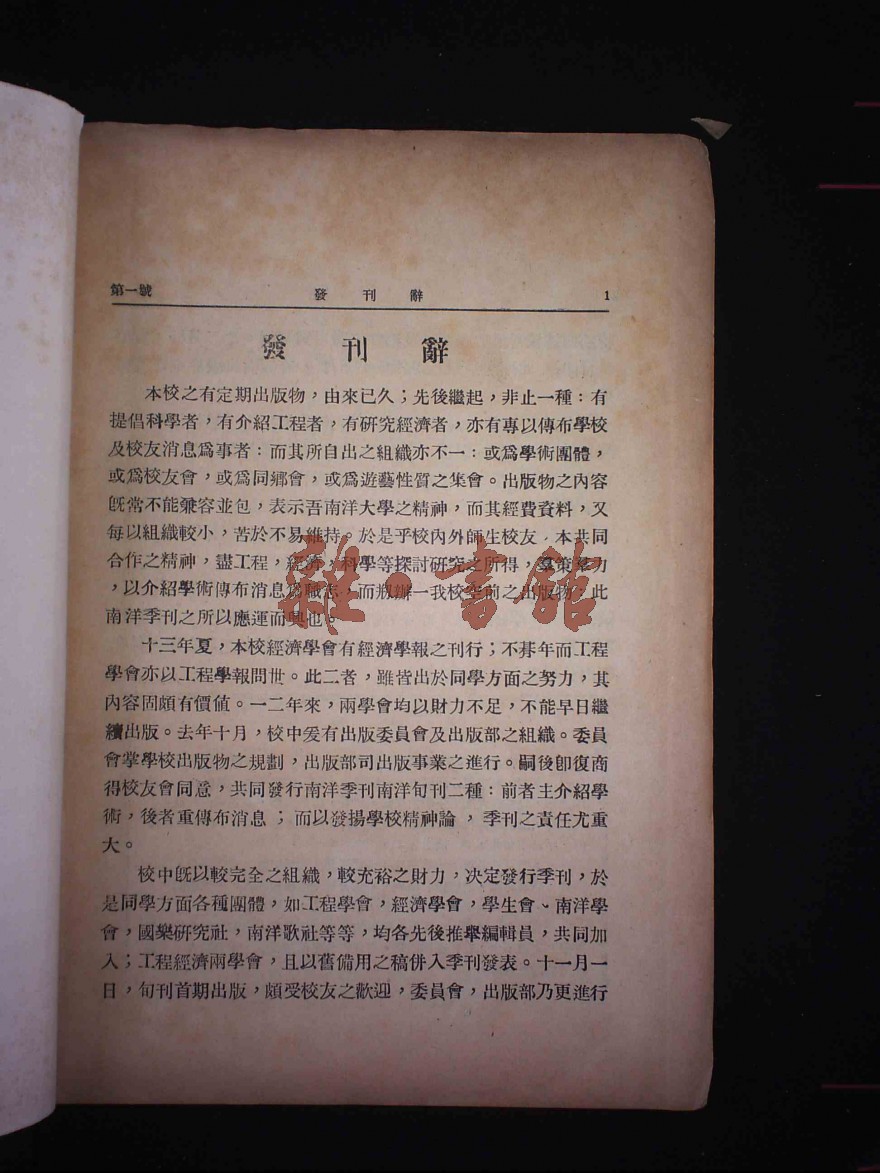 第一號 發刊辭 1
發刊辭
本校之有定期出版物，由來已久；先後繼起，非止一種：有
提倡科學者，有介紹工程者，有研究經濟者，亦有專以傳布學校
及校友消息爲事者：而其所自出之組織亦不一：或爲學術團體，
或爲校友會，或爲同鄉會，或爲遊藝性質之集會。出版物之內容
旣常不能兼容並包，表示吾南洋大學之精神，而其經費資料，又
每以組織較小，苦於不易維持。於是乎校內外師生校友，本共同
合作之精神，盡工程，經濟，科學等探討研究之所得，羣策羣力
，以介紹學術傳布消息爲職志，而剏辦一我校空前之出版物；此
南洋季刊之所以應運而興也。
十三年夏，本校經濟學會有經濟學報之刊行；不朞年而工程
學會亦以工程學報問世。此二者，雖皆出於同學方面之努力，其
內容固頗有價値。一二年來，兩學會均以財力不足，不能早日繼
續出版。去年十月，校中爰有出版委員會及出版部之組織。委員
會掌學校出版物之規劃，出版部司出版事業之進行。嗣後卽復商
得校友會同意，共同發行南洋季刊南洋旬刊二種：前者主介紹學
術，後者重傳布消息；而以發揚學校精神論，季刊之責任尤重
大。
校中旣以較完全之組織，較充裕之財力，决定發行季刊，於
是同學方面各種團體，如工程學會，經濟學會，學生會、南洋學
會，國樂研究社，南洋歌社等等，均各先後推舉編輯員，共同加
入；工程經濟兩學會，且以舊備用之稿併入季刊發表。十一月一
日，旬刊首期出版，頗受校友之歡迎，委員會，出版部乃更進行
雜·書館